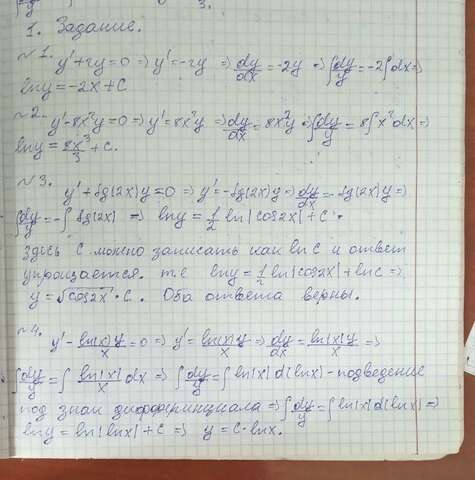 1. Задание.
~1. y'+2y=0 => y'=-2y => dy/dx=-2y => ∫dy/y=-2∫dx =>
lny=-2x+C
~2. y'-8x²y=0 => y'=8x²y => dy/dx=8x²y => ∫dy/y=8∫x²dx =>
lny=8x³/3+C.
~3. y'+tg(2x)y=0 => y'=-tg(2x)y => dy/dx=-tg(2x)y =>
∫dy/y=-∫tg(2x) => lny=1/2 ln|cos2x|+C.
Здесь C можно записать как lnC и ответ
упрощается. т.е lny=1/2 ln|cos2x|+lnC =>
y=√cos2x·C. Оба ответа верны.
~4. y'-ln(x)y/x=0 => y'=ln(x)y/x => dy/dx=ln(x)y/x =>
∫dy/y=∫ln|x|/x dx => ∫dy/y=∫ln|x|d(lnx) - подведение
под знак дифференциала => ∫dy/y=∫ln|x|d(lnx) =>
lny=ln|lnx|+C => y=C·lnx.